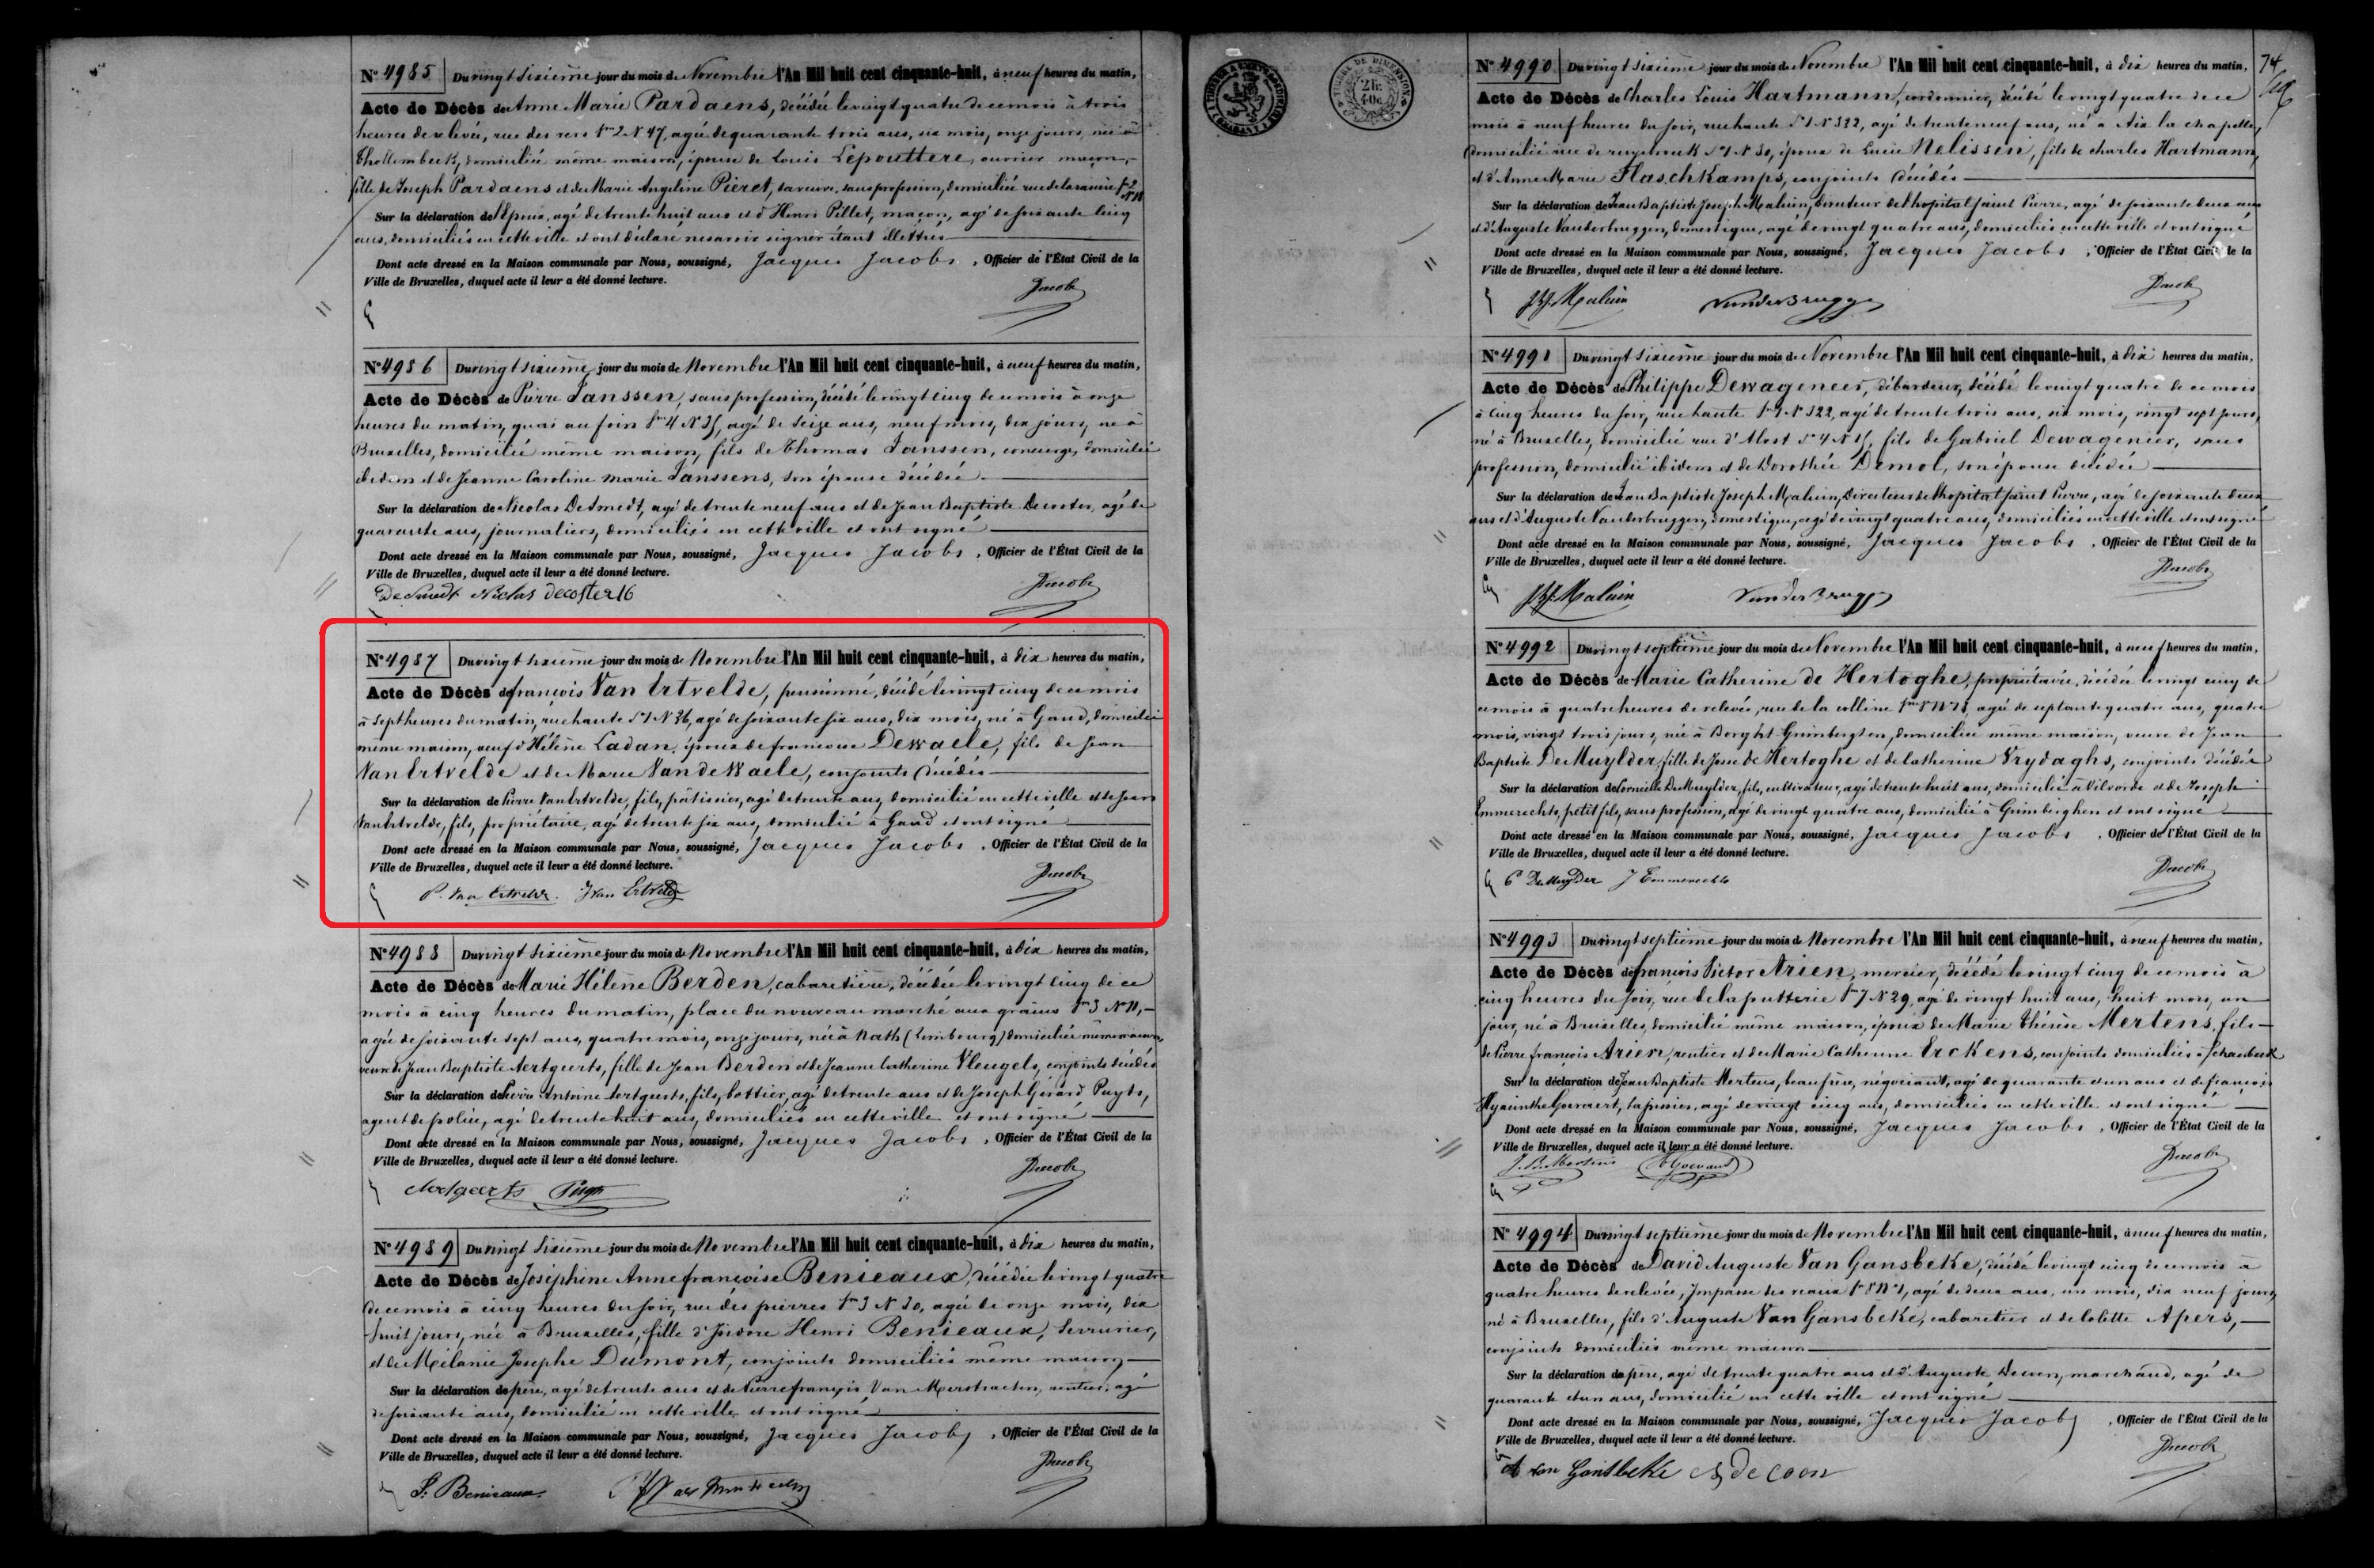 N° 4985 Du vingt sixième jour du mois de Novembre l'An Mil huit cent cinquante-huit, à neuf heures du matin,
Acte de Décès de Anne Marie Pardaens, décédée le vingt quatre de ce mois à trois
heures de relevée, rue des vers Son 2 N 47, agée de quarante trois ans, six mois, onze jours, née à
Thollembeek, domiciliée même maison, épouse de Louis Lepouttere, ouvrier maçon,
fille de Joseph Pardaens et de Marie Angeline Pieret, sa veuve, sans profession, domiciliée rue de la
Sur la déclaration de l'Epoux, agé de trente huit ans et d'Henri Pillet, maçon, agé de soixante cinq
ans, domiciliés en cette ville et ont déclaré ne savoir signer étant illettrés
Dont acte dressé en la Maison communale par Nous, soussigné, Jacques Jacobs, Officier de l'État Civil de la
Ville de Bruxelles, duquel acte il leur a été donné lecture.
Jacobs
N° 4986 Du vingt sixième jour du mois de Novembre l'An Mil huit cent cinquante-huit, à neuf heures du matin,
Acte de Décès de Pierre Janssen, sans profession, décédé le vingt cinq de ce mois à onze
heures du matin, quai au foin Son 4 N 35, agé de seize ans, neuf mois, dix jours, né à
Bruxelles, domicilié même maison, fils de Thomas Janssen, concierge, domicilié
ibidem et de Jeanne Caroline Marie Janssens, son épouse décédée
Sur la déclaration de Nicolas Desmedt, agé de trente neuf ans et de Jean Baptiste Decoster, agé de
quarante ans, journaliers, domiciliés en cette ville et ont signé
Dont acte dressé en la Maison communale par Nous, soussigné, Jacques Jacobs, Officier de l'État Civil de la
Ville de Bruxelles, duquel acte il leur a été donné lecture.
Jacobs
De Smedt Niclas decoster
N° 4987 Du vingt sixième jour du mois de Novembre l'An Mil huit cent cinquante-huit, à dix heures du matin,
Acte de Décès de françois Van Ertvelde, pensionné, décédé le vingt cinq de ce mois
à sept heures du matin, rue haute S 1 N 36, agé de soixante six ans, dix mois, né à Gand, domicilié
même maison, veuf d'Hélène Ladan, époux de francoise Dewaele, fils de Jean
Van Ertvelde et de Marie Van de Waele, conjoints décédés
Sur la déclaration de Pierre Van Ertvelde, fils, pâtissier, agé de trente ans, domicilié en cette ville et de Jean
Van Ertvelde, fils, propriétaire, agé de trente six ans, domicilié à Gand et ont signé
Dont acte dressé en la Maison communale par Nous, soussigné, Jacques Jacobs, Officier de l'État Civil de la
Ville de Bruxelles, duquel acte il leur a été donné lecture.
Jacobs
P. Van Ertvelde. J Van Ertvelde
N° 4988 Du vingt sixième jour du mois de Novembre l'An Mil huit cent cinquante-huit, à dix heures du matin,
Acte de Décès de Marie Hélène Berden, cabaretière, décédée le vingt cinq de ce
mois à cinq heures du matin, place du nouveau marché aux grains Son 3 N 11,
agée de soixante sept ans, quatre mois, onze jours, née à Rath (Limbourg) domiciliée même maison,
veuve de Jean Baptiste Aertgeerts, fille de Jean Berden et de Jeanne Catherine Vleugels, conjoints décédés
Sur la déclaration de Pierre Antoine Aertgeerts, fils, bottier, agé de trente ans et de Joseph Gérard Puyts,
agent de police, agé de trente huit ans, domiciliés en cette ville et ont signé
Dont acte dressé en la Maison communale par Nous, soussigné, Jacques Jacobs, Officier de l'État Civil de la
Ville de Bruxelles, duquel acte il leur a été donné lecture.
Jacobs
N° 4989 Du vingt sixième jour du mois de Novembre l'An Mil huit cent cinquante-huit, à dix heures du matin,
Acte de Décès de Joséphine Anne françoise Benieaux, décédée le vingt quatre
de ce mois à cinq heures du soir, rue des pierres Son 3 N 30, agée de onze mois, dix
huit jours, née à Bruxelles, fille d'Isidore Henri Benieaux, serrurier,
et de Mélanie Josephe Dumont, conjoints domiciliés même maison
Sur la déclaration du père, agé de trente ans et de Pierre françois Van Merstraeten, rentier, agé
de soixante ans, domiciliés en cette ville et ont signé
Dont acte dressé en la Maison communale par Nous, soussigné, Jacques Jacobs, Officier de l'État Civil de la
Ville de Bruxelles, duquel acte il leur a été donné lecture.
Jacobs
Benieaux
74
N° 4990 Du vingt sixième jour du mois de Novembre l'An Mil huit cent cinquante-huit, à dix heures du matin,
Acte de Décès de Charles Louis Hartmann, cordonnier, décédé le vingt quatre de ce
mois à neuf heures du soir, rue haute S 1 N 322, agé de trente neuf ans, né à Aix la chapelle,
domicilié rue de ruysbroeck S 1 N 30, époux de Lucie Nelissen, fils de Charles Hartmann,
et d'Anne Marie Flaschkamps, conjoints décédés
Sur la déclaration de Jean Baptiste Joseph Maluin, Directeur de l'hopital saint Pierre, agé de soixante deux ans
et d'Auguste Vanderbruggen, domestique, agé de vingt quatre ans, domiciliés en cette ville et ont signé
Dont acte dressé en la Maison communale par Nous, soussigné, Jacques Jacobs, Officier de l'État Civil de la
Ville de Bruxelles, duquel acte il leur a été donné lecture.
Jacobs
JBJ Maluin Vanderbrugge
N° 4991 Du vingt sixième jour du mois de Novembre l'An Mil huit cent cinquante-huit, à dix heures du matin,
Acte de Décès de Philippe Dewageneer, débardeur, décédé le vingt quatre de ce mois
à cinq heures du soir, rue haute Son 1 N 322, agé de trente trois ans, six mois, vingt sept jours,
né à Bruxelles, domicilié rue d'Alost S 4 N 15, fils de Gabriel Dewageneer, sans
profession, domicilié ibidem et de Dorothée Demol, son épouse décédée
Sur la déclaration de Jean Baptiste Joseph Maluin, Directeur de l'hopital saint Pierre, agé de soixante deux
ans et d'Auguste Vanderbruggen, domestique, agé de vingt quatre ans, domiciliés en cette ville et ont signé
Dont acte dressé en la Maison communale par Nous, soussigné, Jacques Jacobs, Officier de l'État Civil de la
Ville de Bruxelles, duquel acte il leur a été donné lecture.
Jacobs
JBJ Maluin Vanderbrugge
N° 4992 Du vingt septième jour du mois de Novembre l'An Mil huit cent cinquante-huit, à neuf heures du matin,
Acte de Décès de Marie Catherine de Hertoghe, propriétaire, décédée le vingt cinq de
ce mois à quatre heures de relevée, rue de la colline, agée de septante quatre ans, quatre
mois, vingt trois jours, née à Borght Grimberghen, domiciliée même maison, veuve de Jean
Baptiste De Muylder, fille de Josse de Hertoghe et de Catherine Vrydaghs, conjoints décédés
Sur la déclaration de Corneille De Muylder, fils, cultivateur, agé de trente huit ans, domicilié à Vilvorde et de Joseph
Emmerechts, petit fils, sans profession, agé de vingt quatre ans, domicilié à Grimberghen et ont signé
Dont acte dressé en la Maison communale par Nous, soussigné, Jacques Jacobs, Officier de l'État Civil de la
Ville de Bruxelles, duquel acte il leur a été donné lecture.
Jacobs
C De Muylder J Emmerechts
N° 4993 Du vingt septième jour du mois de Novembre l'An Mil huit cent cinquante-huit, à neuf heures du matin,
Acte de Décès de françois Victor Arien, mercier, décédé le vingt cinq de ce mois à
cinq heures du soir, rue de la putterie Son 7 N 29, agé de vingt huit ans, huit mois, un
jour, né à Bruxelles, domicilié même maison, époux de Marie Thérèse Mertens, fils
de Pierre françois Arien, rentier et de Marie Catherine Erckens, conjoints domiciliés à Schaerbeek
Sur la déclaration de Jean Baptiste Mertens, beau frère, négociant, agé de quarante et un ans et de françois
Hyacinthe Govaert, tapissier, agé de vingt cinq ans, domiciliés en cette ville et ont signé
Dont acte dressé en la Maison communale par Nous, soussigné, Jacques Jacobs, Officier de l'État Civil de la
Ville de Bruxelles, duquel acte il leur a été donné lecture.
Jacobs
J. B. Mertens
N° 4994 Du vingt septième jour du mois de Novembre l'An Mil huit cent cinquante-huit, à neuf heures du matin,
Acte de Décès de David Auguste Van Gansbeke, décédé le vingt cinq de ce mois à
quatre heures de relevée, Impasse des, agé de deux ans, un mois, dix neuf jours,
né à Bruxelles, fils d'Auguste Van Gansbeke, cabaretier et de Colette Apers,
conjoints domiciliés même maison
Sur la déclaration du père, agé de trente quatre ans et d'Auguste Decoen, marchand, agé de
quarante et un ans, domicilié en cette ville et ont signé
Dont acte dressé en la Maison communale par Nous, soussigné, Jacques Jacobs, Officier de l'État Civil de la
Ville de Bruxelles, duquel acte il leur a été donné lecture.
Jacobs
A Van Gansbeke